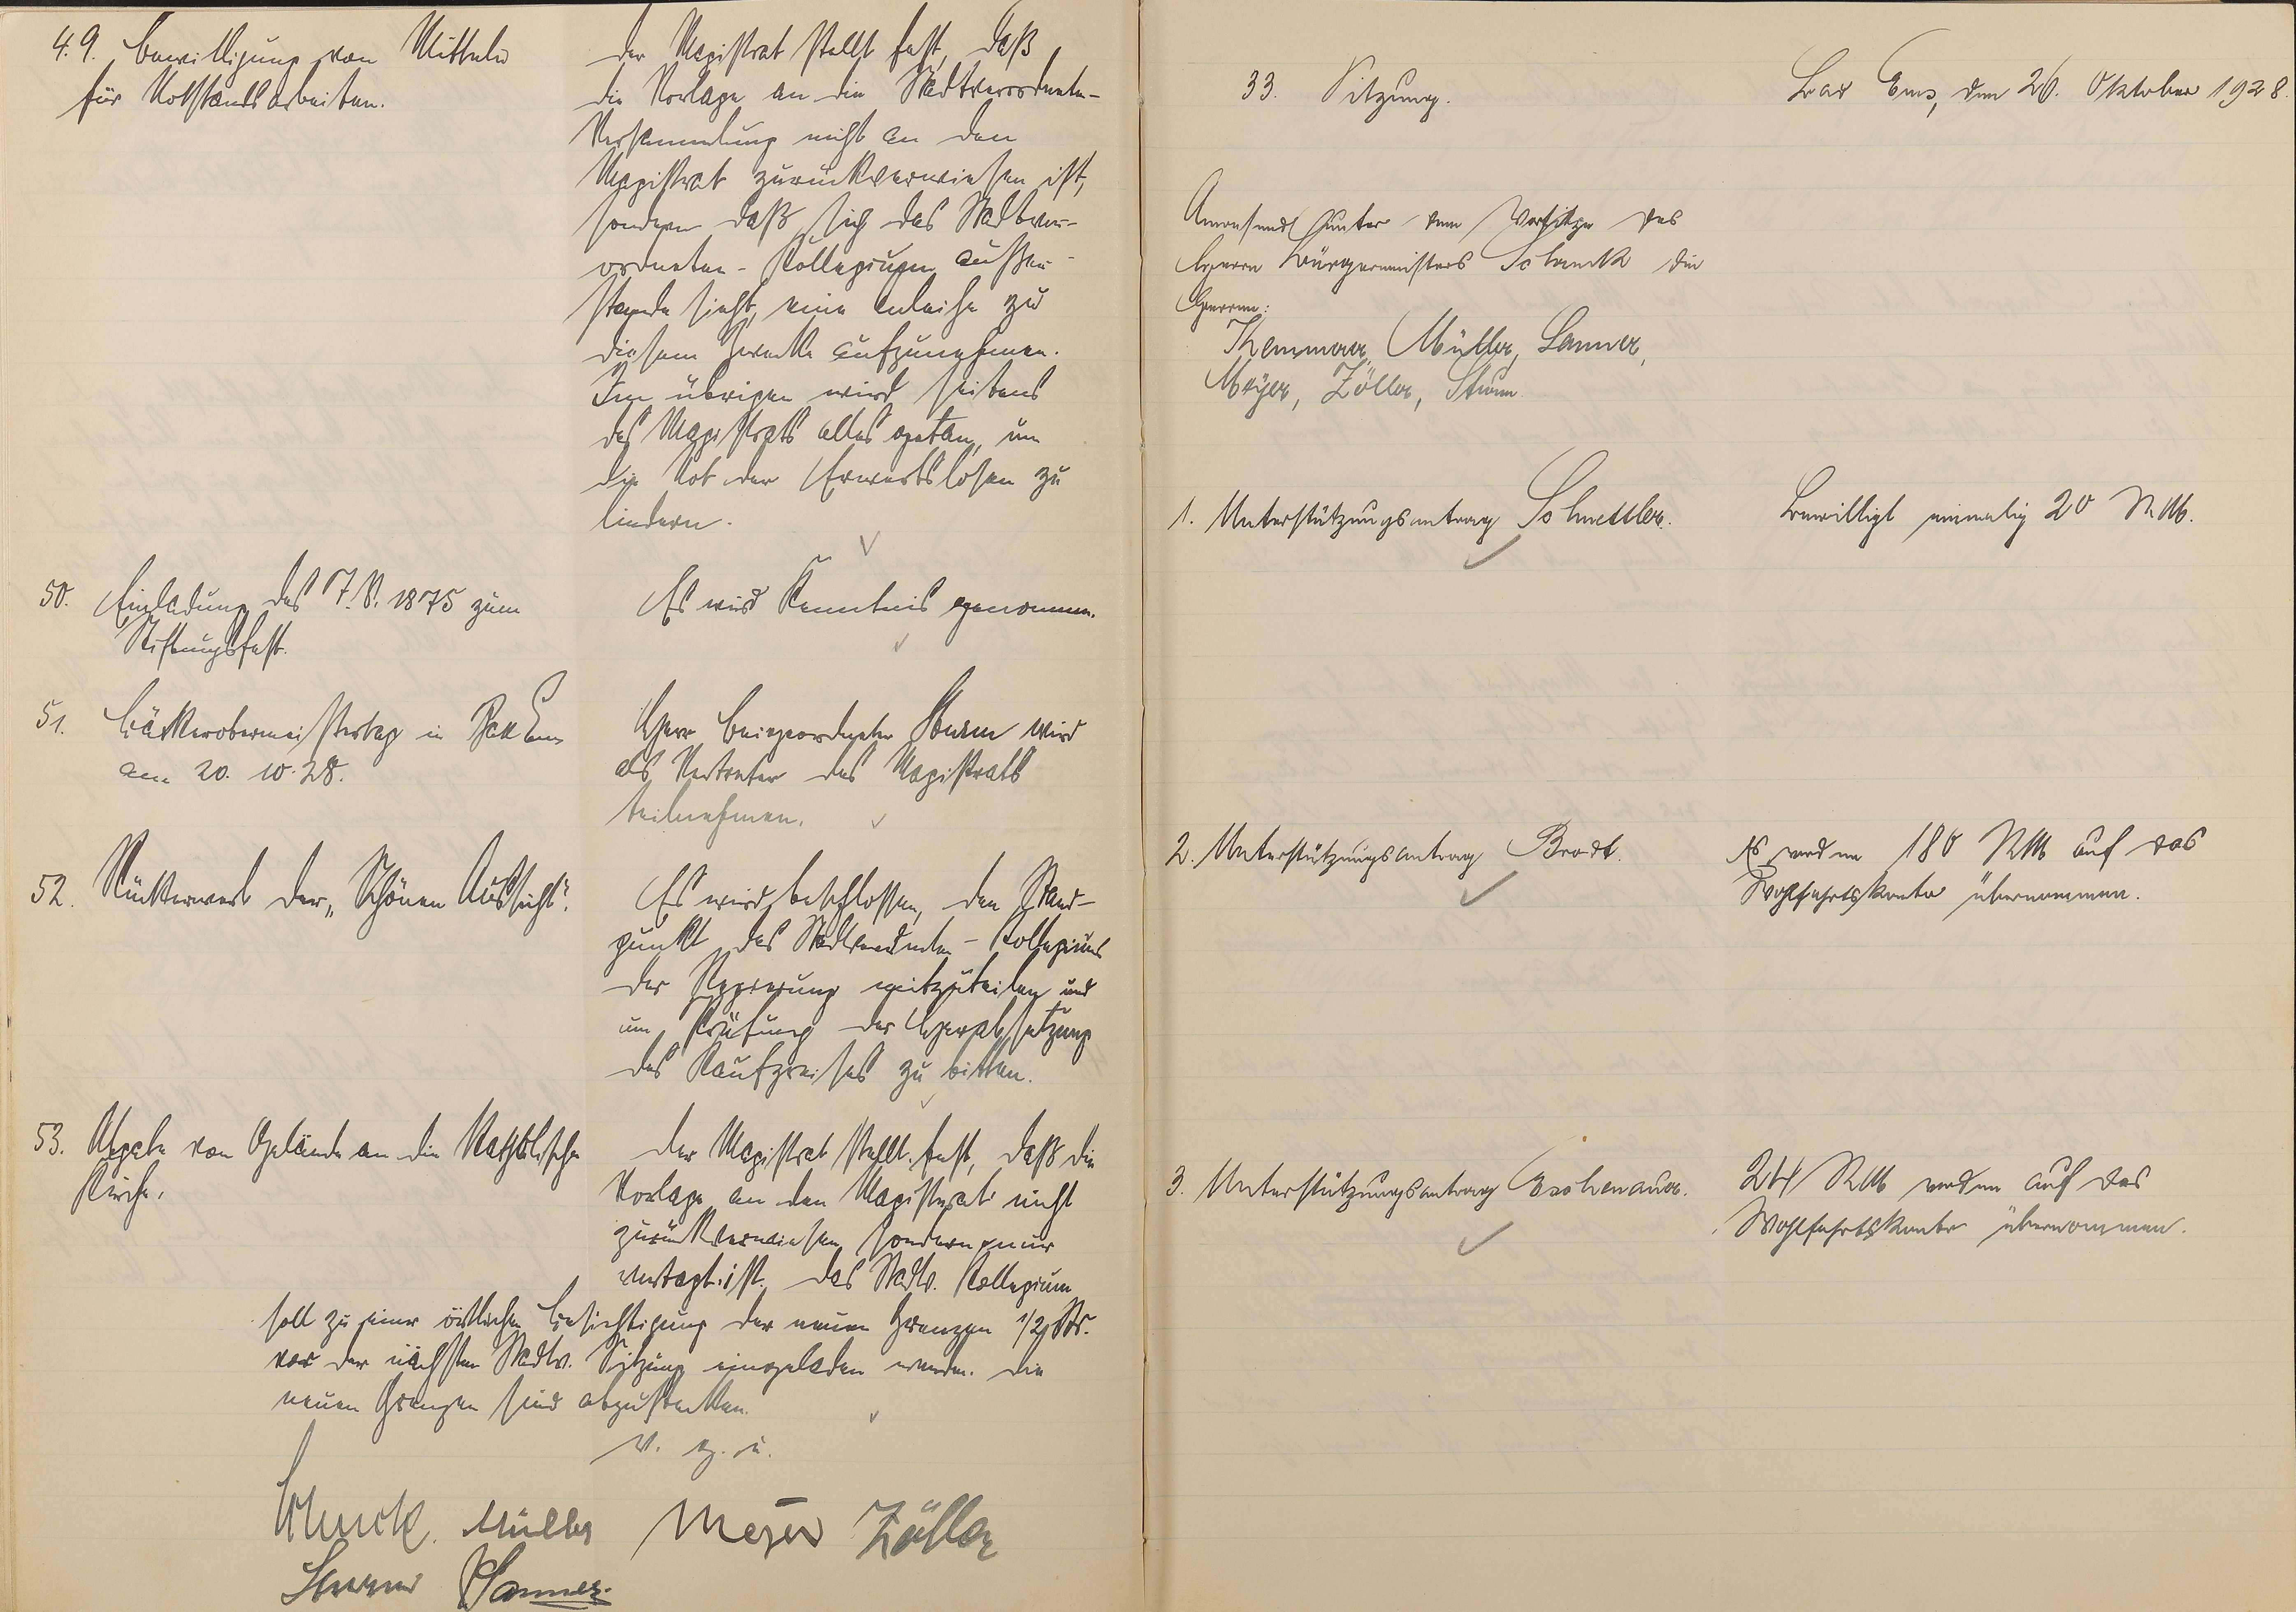 49. Bewilligung von Mitteln
für Notstandsarbeiten.
Der Magistrat stellt fest, daß
die Vorlage an die Stadtverordneten-
Versammlung nicht an den
Magistrat zurückverwiesen ist,
sondern daß sich das Stadtver-
ordneten-Kollegium außer-
stande sieht, eine Anleihe zu
diesem Zwecke aufzunehmen.
Im übrigen wird seitens
des Magistrats alles getan, um
die Not der Erwerbslosen zu
lindern.
50. Einladung des T.V. 1875 zum
Stiftungsfest.
Es wird Kenntnis genommen.
51. Bäckerobermeistertag in Bad Ems
am 20. 10. 28.
Herr Beigeordneter Sturm wird
als Vertreter des Magistrats
teilnehmen.
52. Rückerwerb der „Schönen Aussicht".
Es wird beschlossen, den Stand-
punkt des Stadtverordneten-Kollegiums
der Regierung mitzuteilen und
um Prüfung der Herabsetzung
des Kaufpreises zu bitten.
53. Abgabe von Gelände an die Katholische
Kirche.
Der Magistrat stellt fest, daß die
Vorlage an den Magistrat nicht
zurückverwiesen sondern nur
vertagt ist. Das Stadtv. Kollegium
soll zu einer örtlichen Besichtigung der neuen Grenzen 1/2 Std.
vor der nächsten Stadtv. Sitzung eingeladen werden. Die
neuen Grenzen sind abzustecken.
v. g. u.
Schenck. Müller Meyer Zöller
Sturm Lanner
33. Sitzung.
Bad Ems, den 26. Oktober 1928.
Anwesend unter dem Vorsitze des
Herrn Bürgermeisters Schenck die
Herren:
Themmar, Müller, Lanner,
Meyer, Zöller, Sturm
1. Unterstützungsantrag Schmettler.
Bewilligt einmalig 20 RM.
2. Unterstützungsantrag Brodt.
Es werden 180 RM auf das
Wohlfahrtskonto übernommen.
3. Unterstützungsantrag Eschenauer.
24 RM werden auf das
Wohlfahrtskonto übernommen.